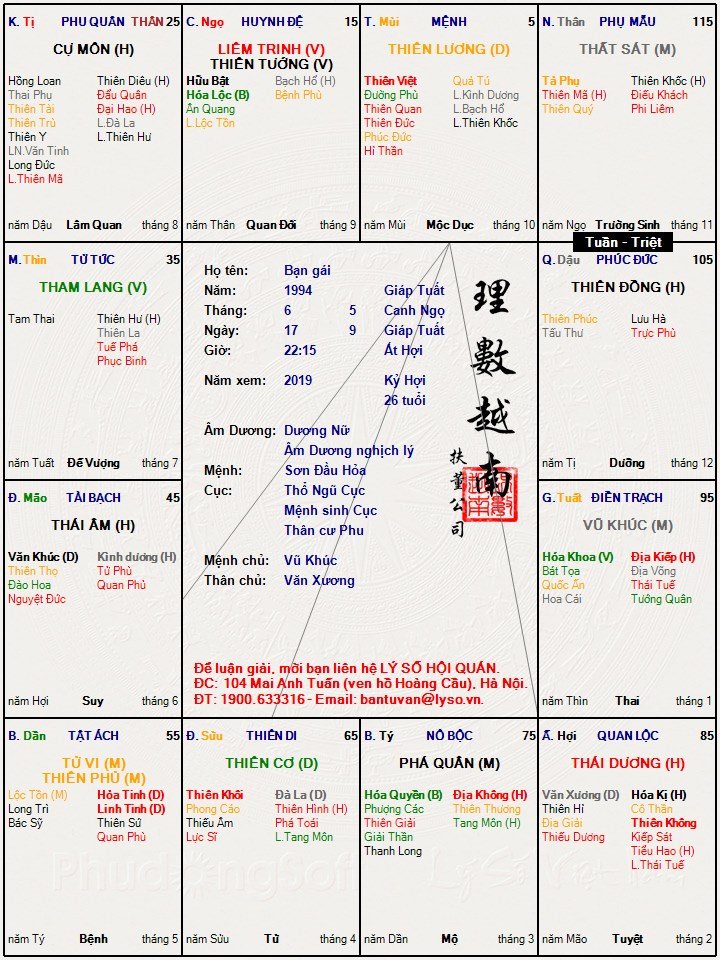 K. Tị PHU QUÂN THÂN 25
CỰ MÔN (H)
Hồng Loan Thiên Diêu (H)
Thai Phụ Đẩu Quân
Thiên Tài Đại Hao (H)
Thiên Trù L.Đà La
Thiên Y L.Thiên Hư
LN.Văn Tinh
Long Đức
L.Thiên Mã
năm Dậu Lâm Quan tháng 8
C. Ngọ HUYNH ĐỆ 15
LIÊM TRINH (V)
THIÊN TƯỚNG (V)
Hữu Bật Bạch Hổ (H)
Hóa Lộc (B) Bệnh Phù
Ân Quang
L.Lộc Tồn
năm Thân Quan Đới tháng 9
T. Mùi MỆNH 5
THIÊN LƯƠNG (D)
Thiên Việt Quả Tú
Đường Phù L.Kình Dương
Thiên Quan L.Bạch Hổ
Thiên Đức L.Thiên Khốc
Phúc Đức
Hỉ Thần
năm Mùi Mộc Dục tháng 10
N. Thân PHỤ MẪU 115
THẤT SÁT (M)
Tả Phụ Thiên Khốc (H)
Thiên Mã (H) Điếu Khách
Thiên Quý Phi Liêm
năm Ngọ Trường Sinh tháng 11
Tuần - Triệt
M. Thìn TỬ TỨC 35
THAM LANG (V)
Tam Thai Thiên Hư (H)
Thiên La
Tuế Phá
Phục Binh
năm Tuất Đế Vượng tháng 7
Họ tên: Bạn gái
Năm: 1994 Giáp Tuất
Tháng: 6 5 Canh Ngọ
Ngày: 17 9 Giáp Tuất
Giờ: 22:15 Ất Hợi
Năm xem: 2019 Kỷ Hợi
26 tuổi
Âm Dương: Dương Nữ
Âm Dương nghịch lý
Mệnh: Sơn Đầu Hỏa
Cục: Thổ Ngũ Cục
Mệnh sinh Cục
Thân cư Phu
Mệnh chủ: Vũ Khúc
Thân chủ: Văn Xương
理數越南
扶董公司
Để luận giải, mời bạn liên hệ LÝ SỐ HỘI QUÁN.
ĐC: 104 Mai Anh Tuấn (ven hồ Hoàng Cầu), Hà Nội.
ĐT: 1900.633316 - Email: bantuvan@lyso.vn.
Q. Dậu PHÚC ĐỨC 105
THIÊN ĐỒNG (H)
Thiên Phúc Lưu Hà
Tấu Thư Trực Phù
năm Tị Dưỡng tháng 12
Đ. Mão TÀI BẠCH 45
THÁI ÂM (H)
Văn Khúc (D) Kình dương (H)
Thiên Thọ Tử Phù
Đào Hoa Quan Phủ
Nguyệt Đức
năm Hợi Suy tháng 6
G. Tuất ĐIỀN TRẠCH 95
VŨ KHÚC (M)
Hóa Khoa (V) Địa Kiếp (H)
Bát Tọa Địa Võng
Quốc Ấn Thái Tuế
Hoa Cái Tướng Quân
năm Thìn Thai tháng 1
B. Dần TẬT ÁCH 55
TỬ VI (M)
THIÊN PHỦ (M)
Lộc Tồn (M) Hỏa Tinh (D)
Long Trì Linh Tinh (D)
Bác Sỹ Thiên Sứ
Quan Phù
năm Tý Bệnh tháng 5
Đ. Sửu THIÊN DI 65
THIÊN CƠ (D)
Thiên Khôi Đà La (D)
Phong Cáo Thiên Hình (H)
Thiếu Âm Phá Toái
Lực Sĩ L.Tang Môn
năm Sửu Tử tháng 4
B. Tý NÔ BỘC 75
PHÁ QUÂN (M)
Hóa Quyền (B) Địa Không (H)
Phượng Các Thiên Thương
Thiên Giải Tang Môn (H)
Giải Thần
Thanh Long
năm Dần Mộ tháng 3
Ấ. Hợi QUAN LỘC 85
THÁI DƯƠNG (H)
Văn Xương (D) Hóa Kị (H)
Thiên Hỉ Cô Thần
Địa Giải Thiên Không
Thiếu Dương Kiếp Sát
Tiểu Hao (H)
L.Thái Tuế
năm Mão Tuyệt tháng 2